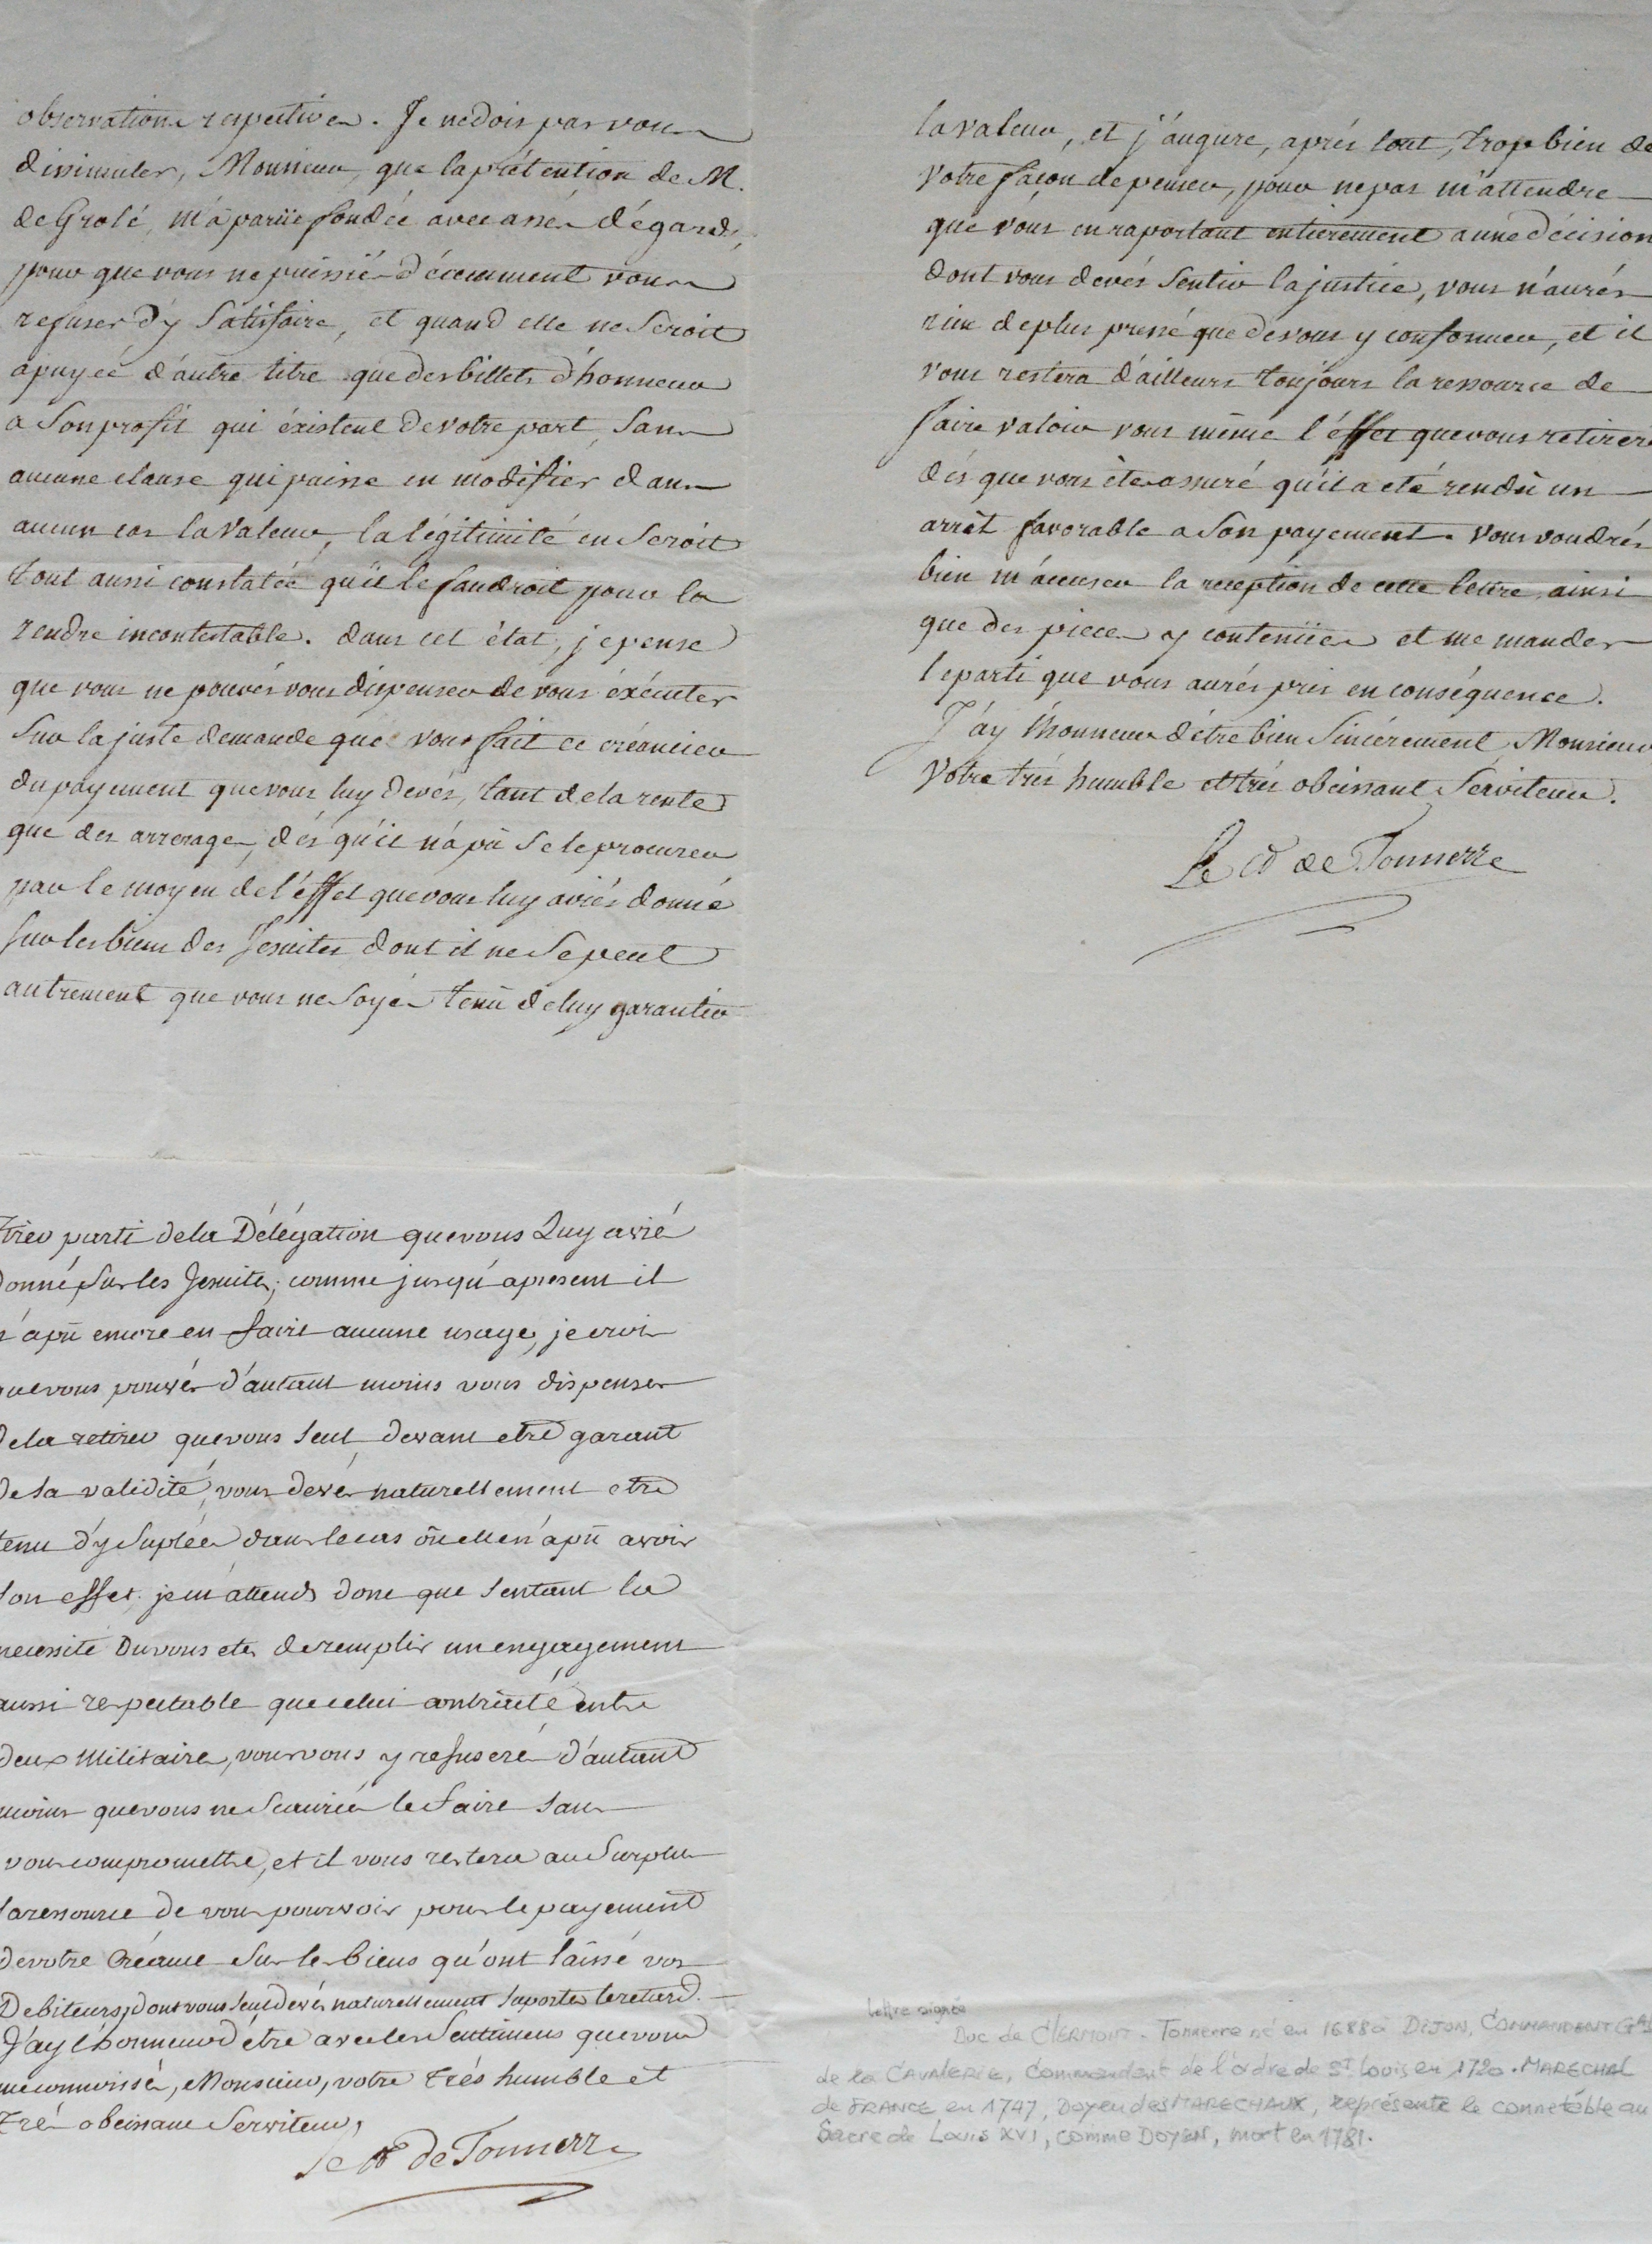 observations respectives. Je ne dois pas vous
dissimuler, Monsieur, que la prétention de M.
de Grolé, m'a parüe fondée avec assés d'égards,
pour que vous ne puissiés décemment vous
refuser d'y satisfaire, et quand elle ne seroit
apuyée d'autre titre que des billets d'honneur
a son profit qui éxistent de votre part, sans
aucune clause qui puisse en modifier dans
aucun cas la valeur, la légitimité en seroit
tout aussi constatée qu'il le faudroit pour la
rendre incontestable. dans cet état, je pense
que vous ne pouvés vous dispenser de vous éxécuter
sur la juste demande que vous fait ce créancier
du payement que vous luy devés, tant de la rente
que des arrerages, dés qu'il n'a pû se le procurer
par le moyen de l'éffet que vous luy aviés donné
sur les biens des Jesuites dont il ne se peut
autrement que vous ne soyés tenû de luy garantir
la valeur, et j'augure, aprés tout, trop bien de
votre façon de penser, pour ne pas m'attendre
que vous en raportant entierement a une décision
dont vous devés sentir la justice, vous n'aurés
rien de plus pressé que de vous y conformer, et il
vous restera d'ailleurs toujours la ressource de
faire valoir vous même l'éffet que vous retirerés
dés que vous étes assuré qu'il a eté rendû un
arrêt favorable a son payement. Vous voudrés
bien m'accuser la reception de cette lettre, ainsi
que des pieces y contenües et me mander
le parti que vous aurés pris en conséquence.
J'ay l'honneur d'être bien sincérement, Monsieur
Votre trés humble et trés obeissant Serviteur.
Le d de Tonnerre
tirer parti de la Délégation que vous Luy avié
donné sur les Jesuites; comme jusqu'apresent il
n'apû encore en faire aucune usage, je crois
que vous pouvés d'autant moins vous dispenser
de la retirer que vous seul devant etre garant
de sa validité, vous devés naturellement etre
tenu d'y supléer dans le cas où elle n'a pû avoir
son effet. je m'attends donc que sentant la
necessité où vous etes de remplir un engagement
aussi respectable que celui contracté entre
deux Militaires, vous vous y refuseré d'autant
moins que vous ne sauriés le faire sans
vous compromettre, et il vous restera au surplus
la ressource de vous pourvoir pour le payement
de votre créance sur les biens qu'ont laissé vos
Debiteurs, dont vous seul devés naturellement suporter le retard.
J'ay l'honneur d'étre avec les sentimens que vous
me connoissés, Monsieur, votre trés humble et
tré obeissant Serviteur,
Le d de Tonnerre
lettre signée
Duc de CLERMONT-Tonnerre né en 1688 à DIJON, COMMANDENT Gal
de la CAVALERIE, Commandant de l'ordre de St Louis en 1720. MARECHAL
de FRANCE en 1747, Doyen des MARECHAUX, représente le connetable au
Sacre de Louis XVI, comme DOYEN, mort en 1781.